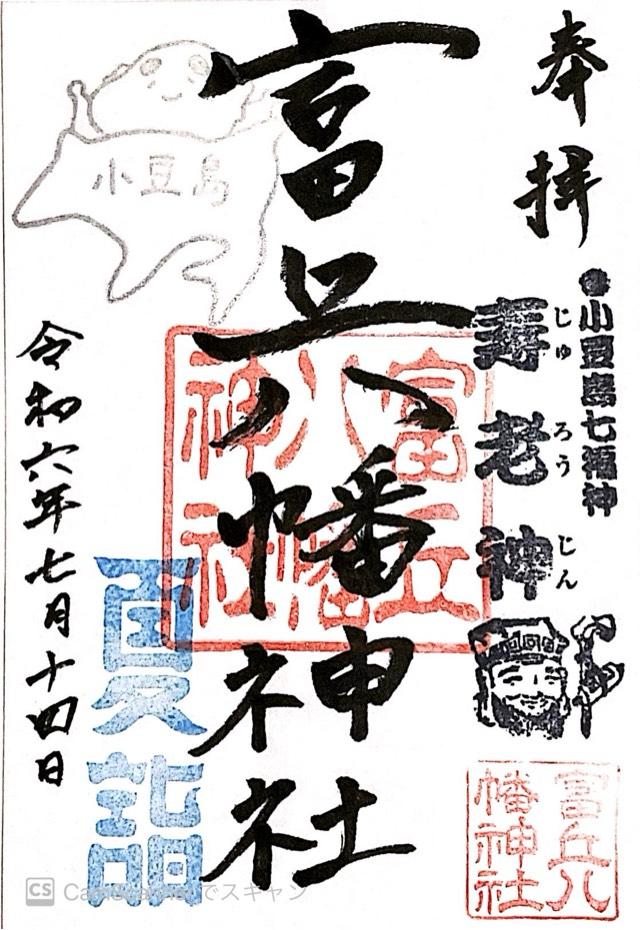 奉拝
●小豆島七福神
寿老神
じゅ
ろう
じん
富丘八幡神社
富丘八
幡神社
富丘
八幡
神社
小豆島
夏詣
令和六年七月十四日
CS CamScannerでスキャン